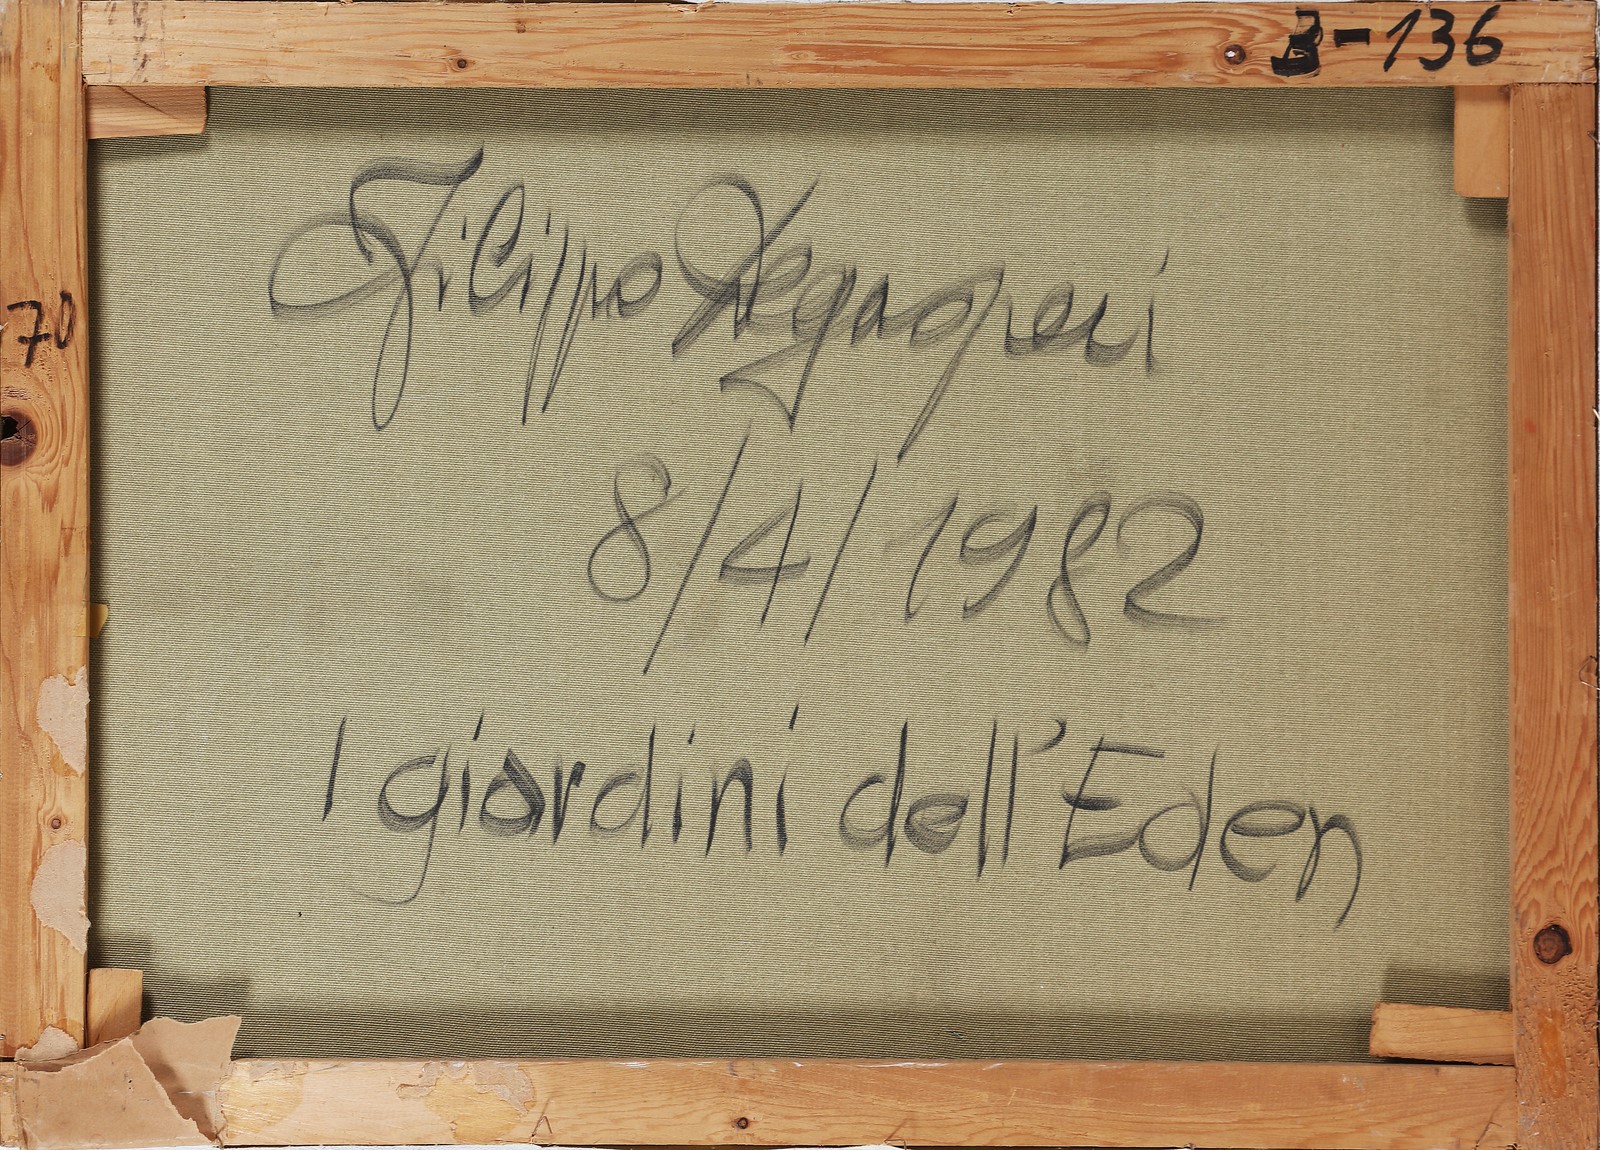 B-136
70
Filippo Degasperi
8/4/1982
I giardini dell'Eden